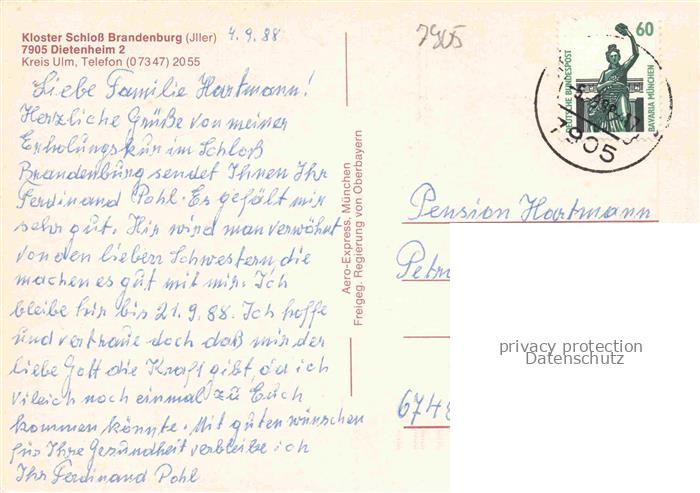 Kloster Schloß Brandenburg (Jller) 4.9.88
7905 Dietenheim 2
Kreis Ulm, Telefon (07347) 2055
Liebe Familie Hartmann!
Herzliche Grüße von meiner
Erholungskur im Schloß
Brandenburg sendet Ihnen Ihr
Ferdinand Pohl. Es gefält mir
sehr gut. Hir wird man verwöhnt
von den lieben Schwestern, die
machen es gut mit mir. Ich
bleibe hir bis 21.9.88. Ich hoffe
und vertraue doch daß mir der
liebe Gott die Kraft gibt, da ich
vileich noch einmal zu Euch
kommen könnte. Mit guten wünschen
für Ihre Gesundheit verbleibe ich
Ihr Ferdinand Pohl
Aero-Express, München
Freigeg. Regierung von Oberbayern
7905
60
DEUTSCHE BUNDESPOST
BAVARIA MÜNCHEN
7905
Pension Hartmann
Petr
674
privacy protection
Datenschutz